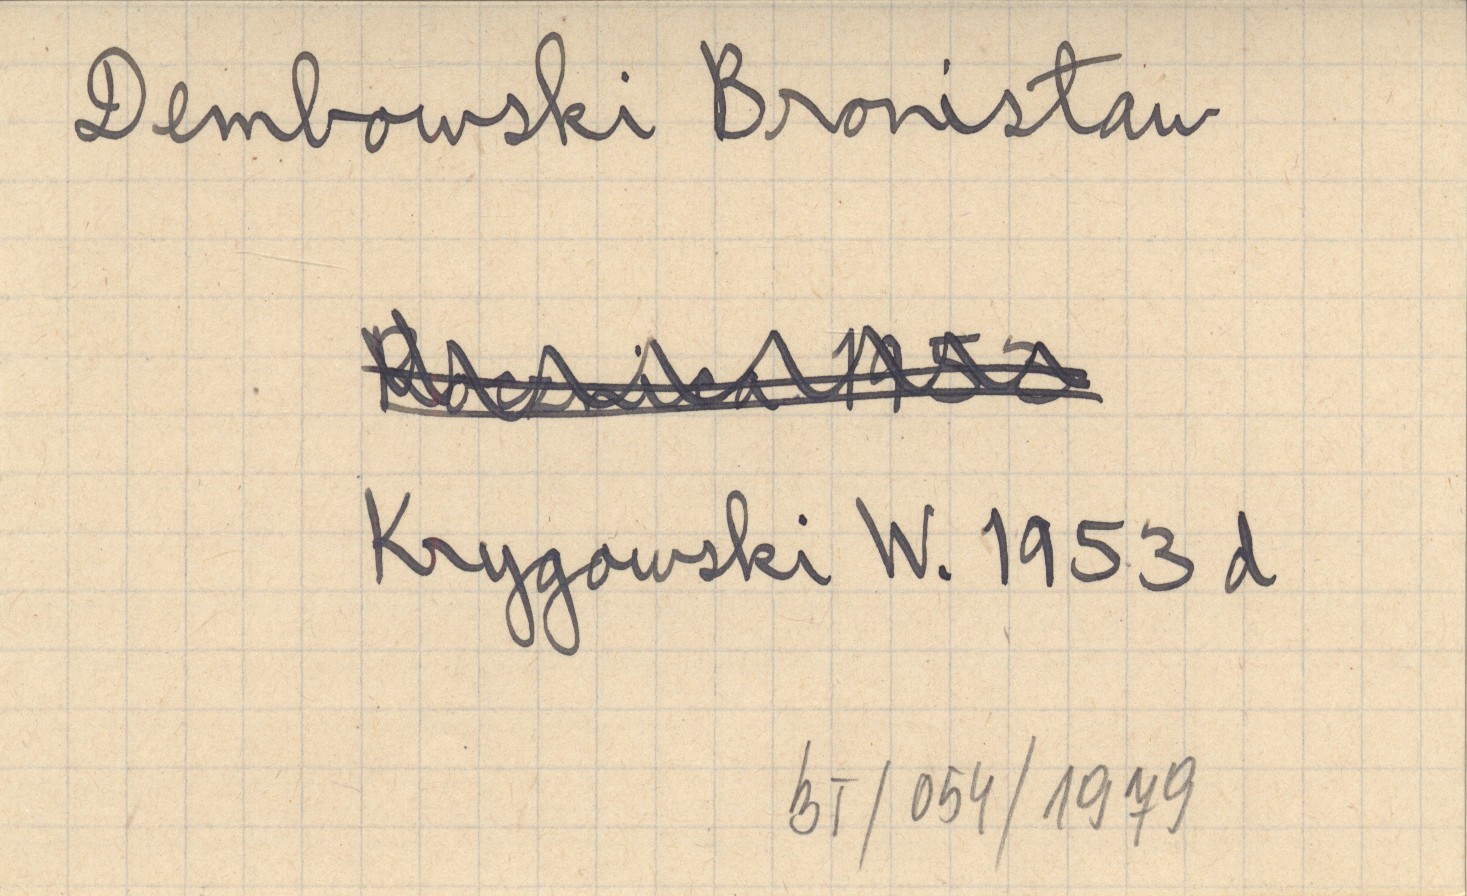 Dembowski Bronisław
1953
Krygowski W. 1953 d
BT/054/1979